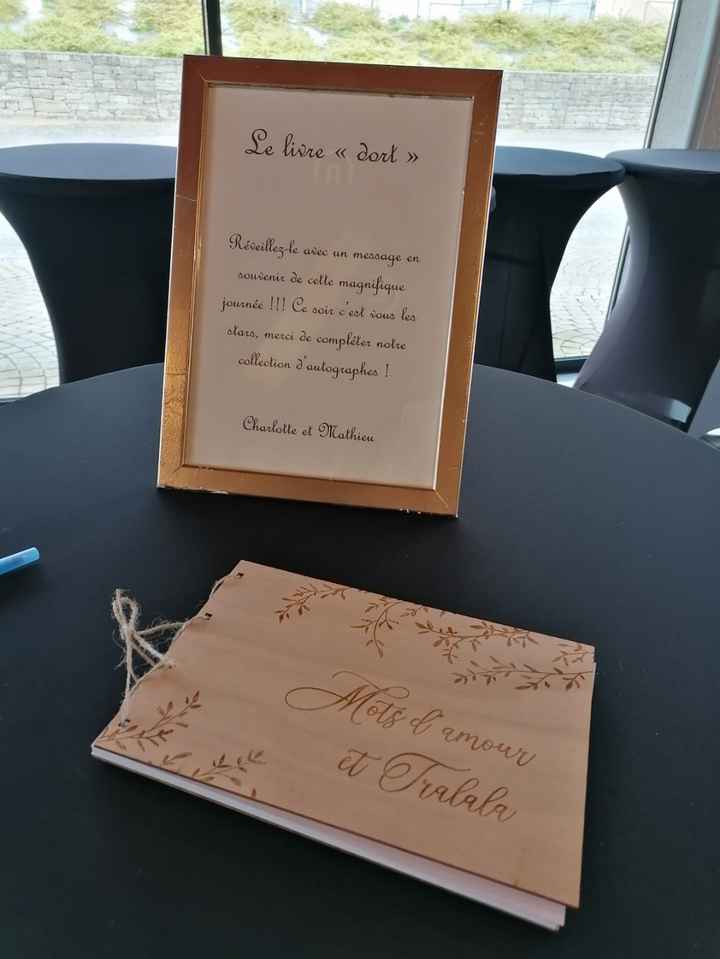 Le livre « dort »
Réveillez-le avec un message en
souvenir de cette magnifique
journée !!! Ce soir c'est vous les
stars, merci de compléter notre
collection d'autographes !
Charlotte et Mathieu
Mots d'amour
et Tralala